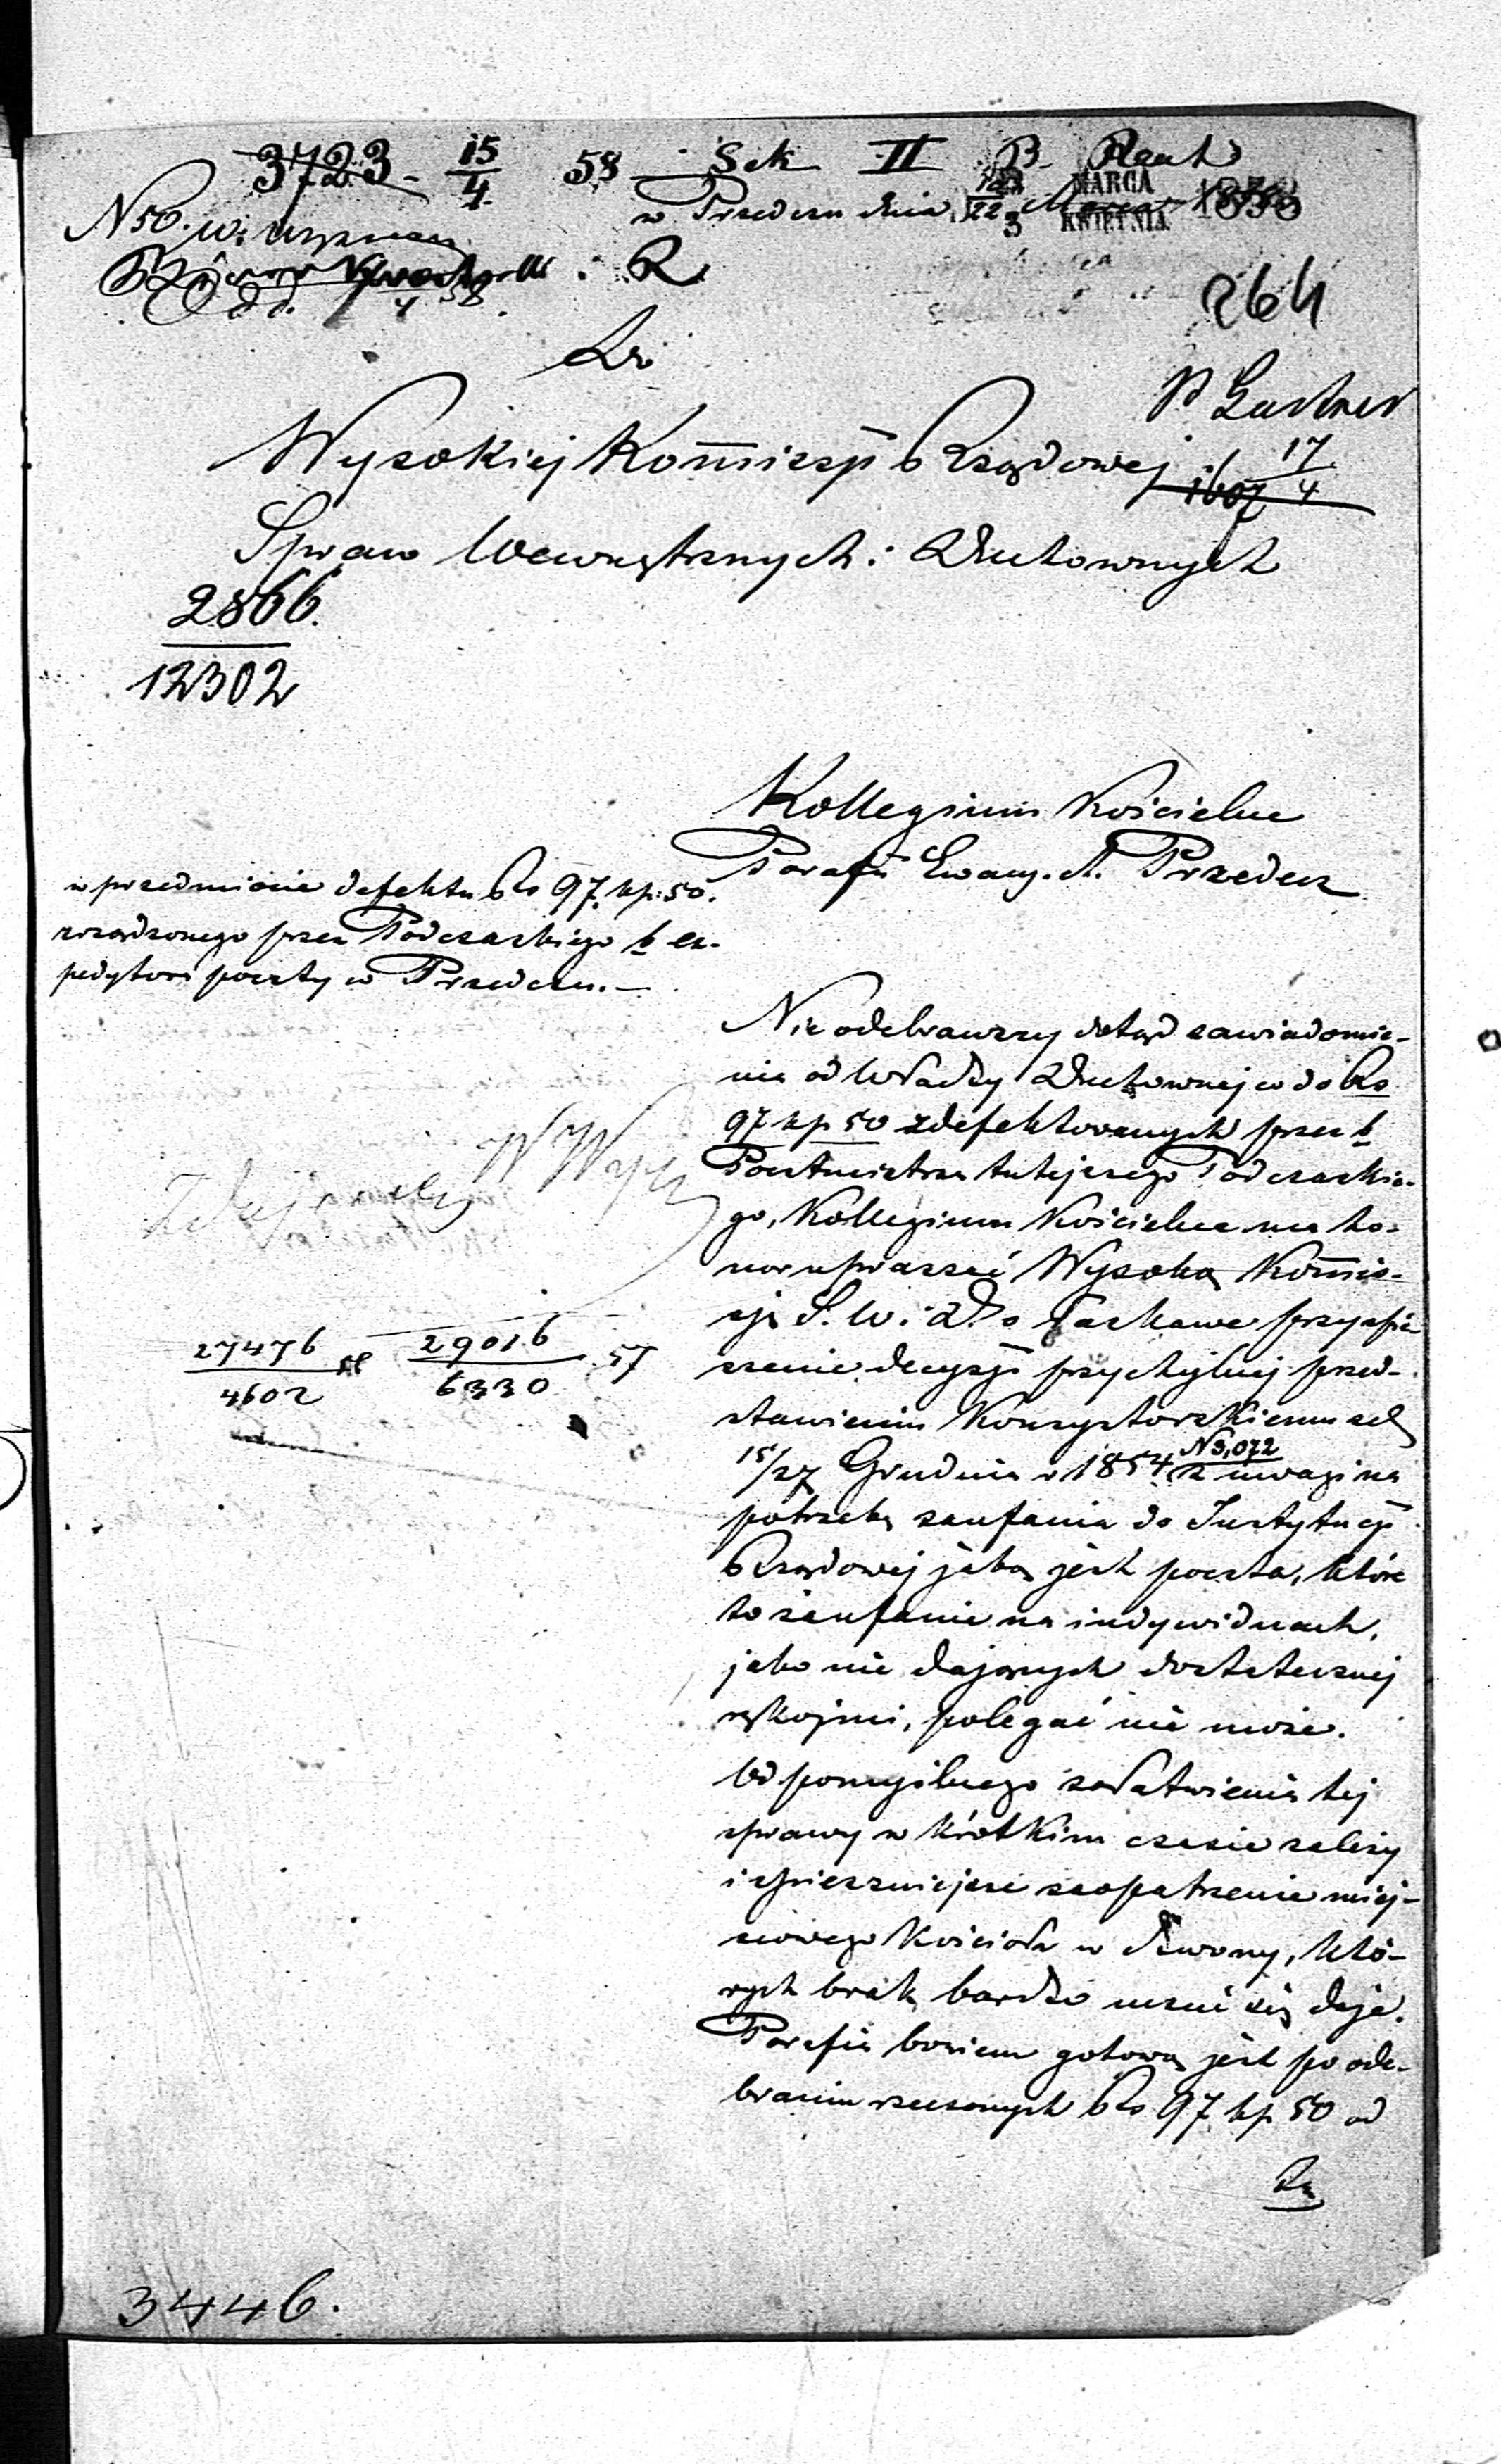 3723 - 15/4 58 Sek II B
w Przedczu dnia 22 3 MARCA KWIETNIA 1858
N 50. W.
R
264
Do
Wysokiej Kommissyi Rządowej
17/4
1607
Spraw Wewnętrznych i Duchownych
2866.
12302
Kollegium Kościelne
Parafii Ewang. A. Przedecz
w przedmiocie defektu Rs 97. kp: 50.
zrządzonego przez Podczaskiego b ex-
pedytora poczty w Przedczu.—
Nie odebrawszy dotąd zawiadomie-
nia od Władzy Duchownej co do Rs
97 kp 50 zdefektowanych przez b
Pocztmistrza tutejszego Podczaskie-
go, Kollegium Kościelne ma ho-
nor upraszać Wysoką Kommis-
syą S. W. i D. o łaskawe przyspie
szenie decyzyi przychylnej przed-
stawieniu Konsystorskiemu z d
15/27 Grudnia r 1854 N 3,072 z uwagi na
potrzebę zaufania do Instytucyi
Rządowej jaką jest poczta, które
to zaufanie na indywiduach,
jako nie dających dostatecznej
rękojmi, polegać nie może.
Od pomyślnego załatwienia tej
sprawy w krótkim czasie zależy
i spieszniejsze zaopatrzenie miej-
scowego Kościoła w Dzwony, któ-
rych brak bardzo uczuć się daje.
Parafia bowiem gotową jest po ode-
braniu rzeczonych Rs 97 kp 50 od
27476/4602 58 29016/6330 57
3446.